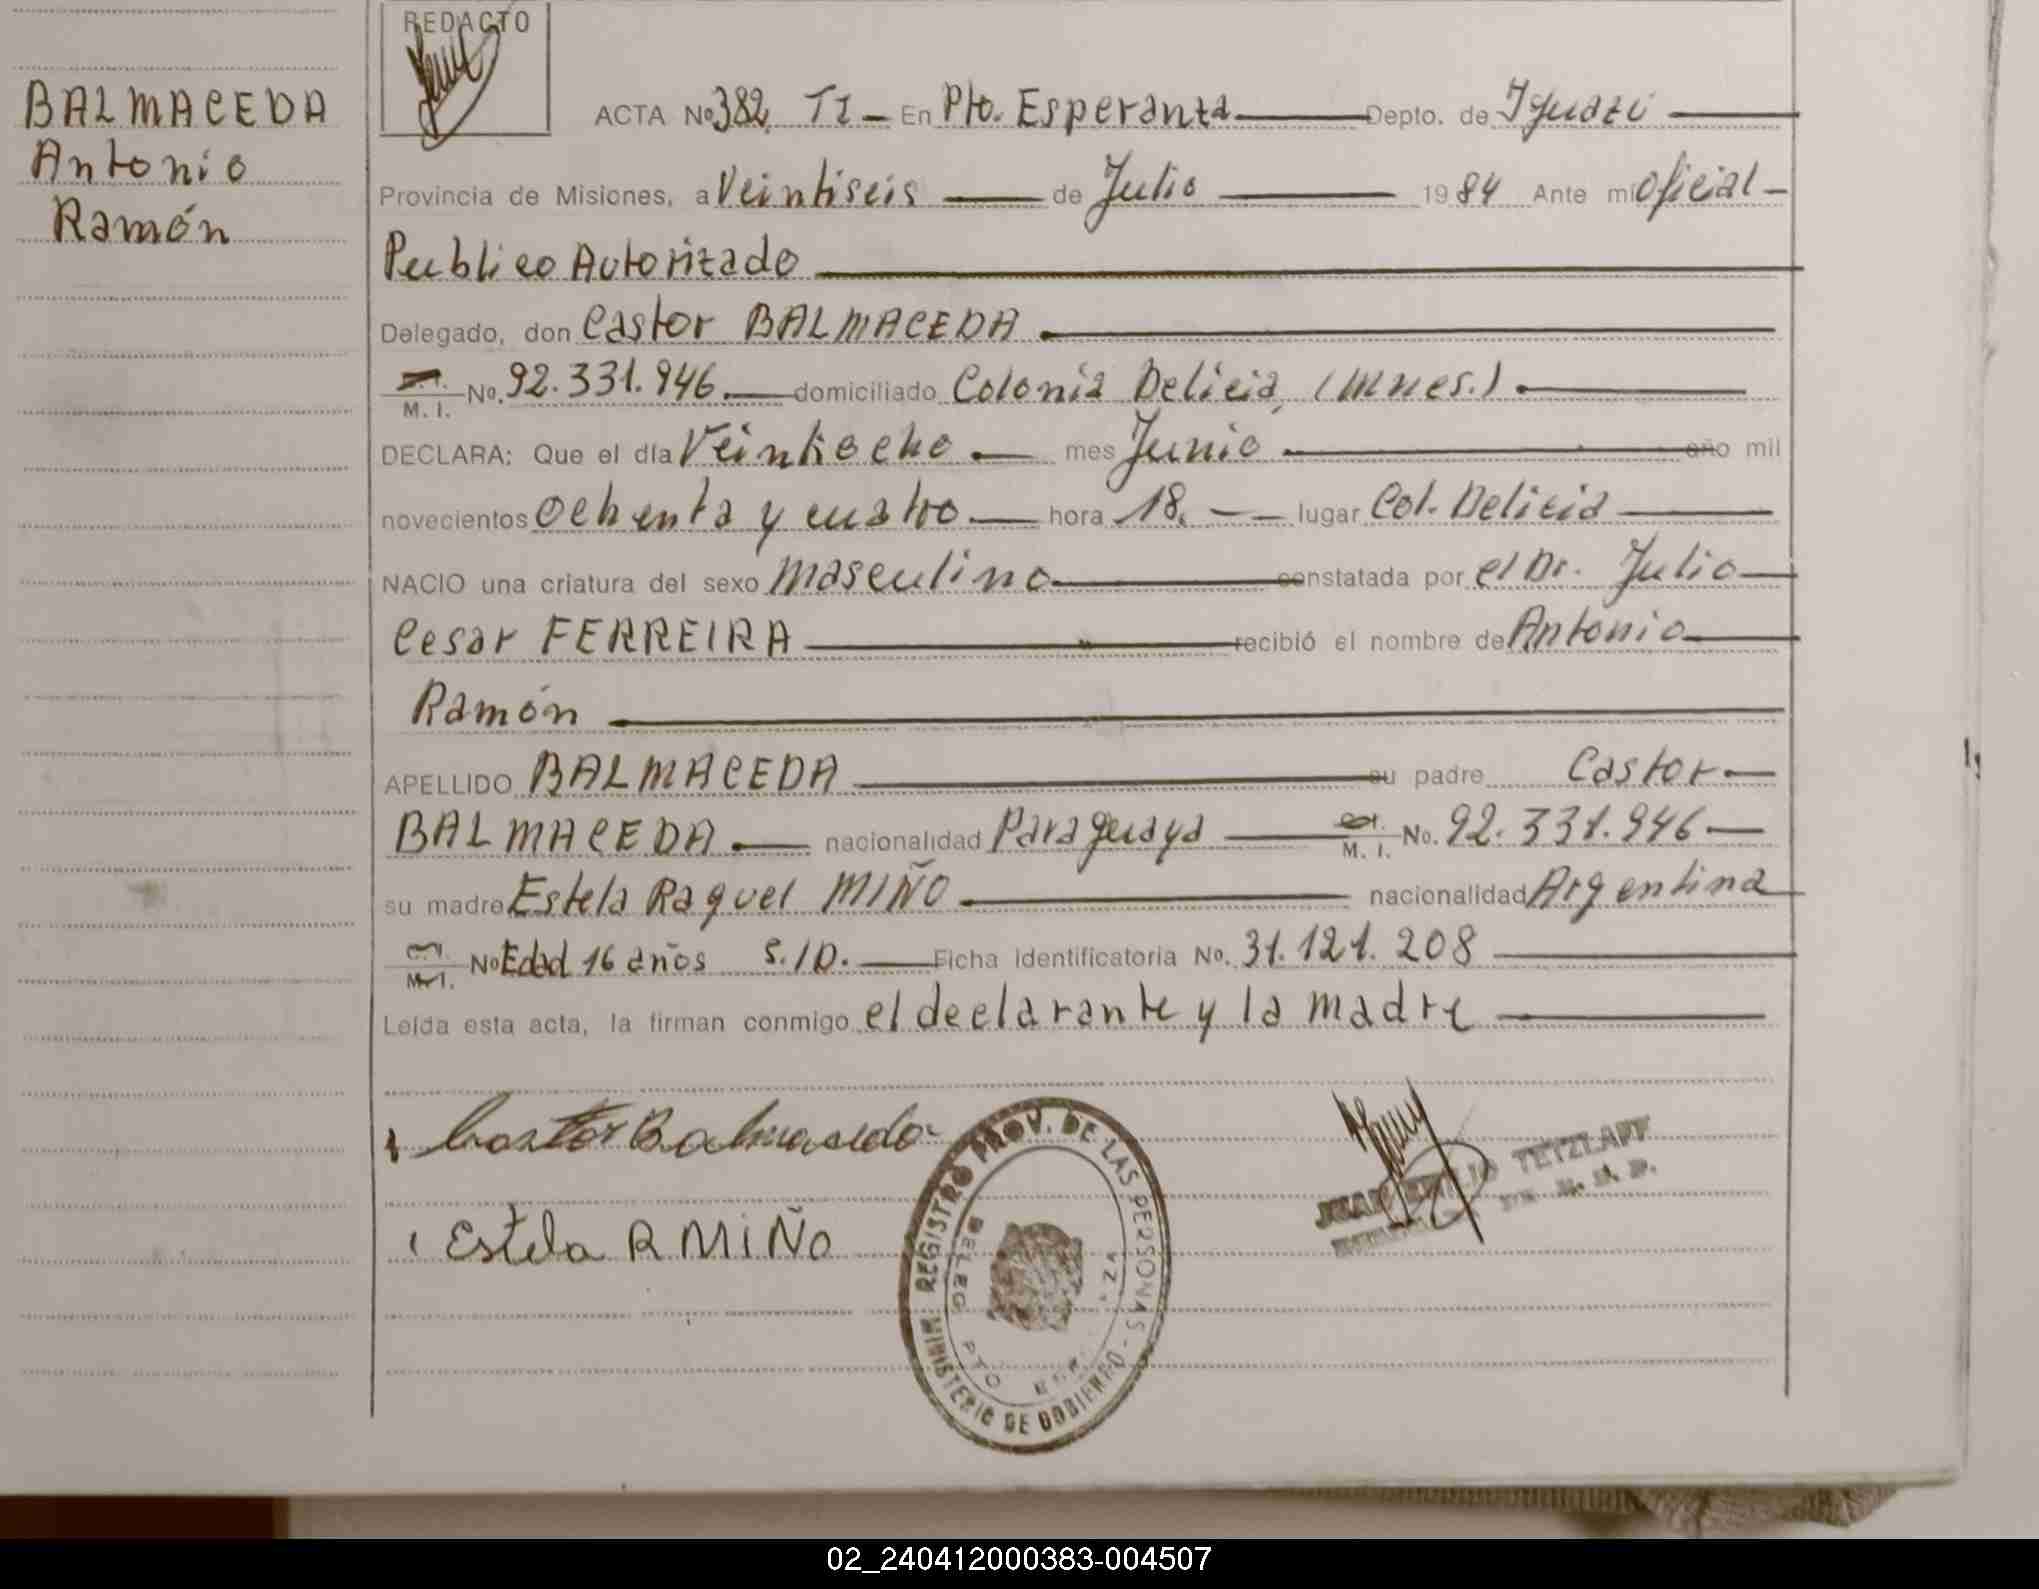 BALMACEDA
Antonio
Ramón
REDACTO
ACTA No 382 TI - En Pto. Esperanza Depto. de Iguazú
Provincia de Misiones, a Veintiseis de Julio 1984 Ante mi oficial
Publico Autorizado
Delegado, don Castor BALMACEDA
M. I. No. 92.331.946. domiciliado Colonia Delicia, (Mnes.)
DECLARA: Que el día Veintiocho mes Junio año mil
novecientos ochenta y cuatro hora 18. lugar Col. Delicia
NACIO una criatura del sexo masculino constatada por el Dr. Julio
Cesar FERREIRA recibió el nombre de Antonio
Ramón
APELLIDO BALMACEDA su padre Castor
BALMACEDA nacionalidad Paraguaya M. I. No. 92.331.946
su madre Estela Raquel MIÑO nacionalidad Argentina
M. I. No Edad 16 años S./D. Ficha identificatoria No. 31.121.208
Leída esta acta, la firman conmigo el declarante y la madre
Castor Balmaseda
Estela R MIÑO
REGISTRO PROV. DE LAS PERSONAS - MINISTERIO DE GOBIERNO
DELEG PTO
TETZLAFF
02_240412000383-004507